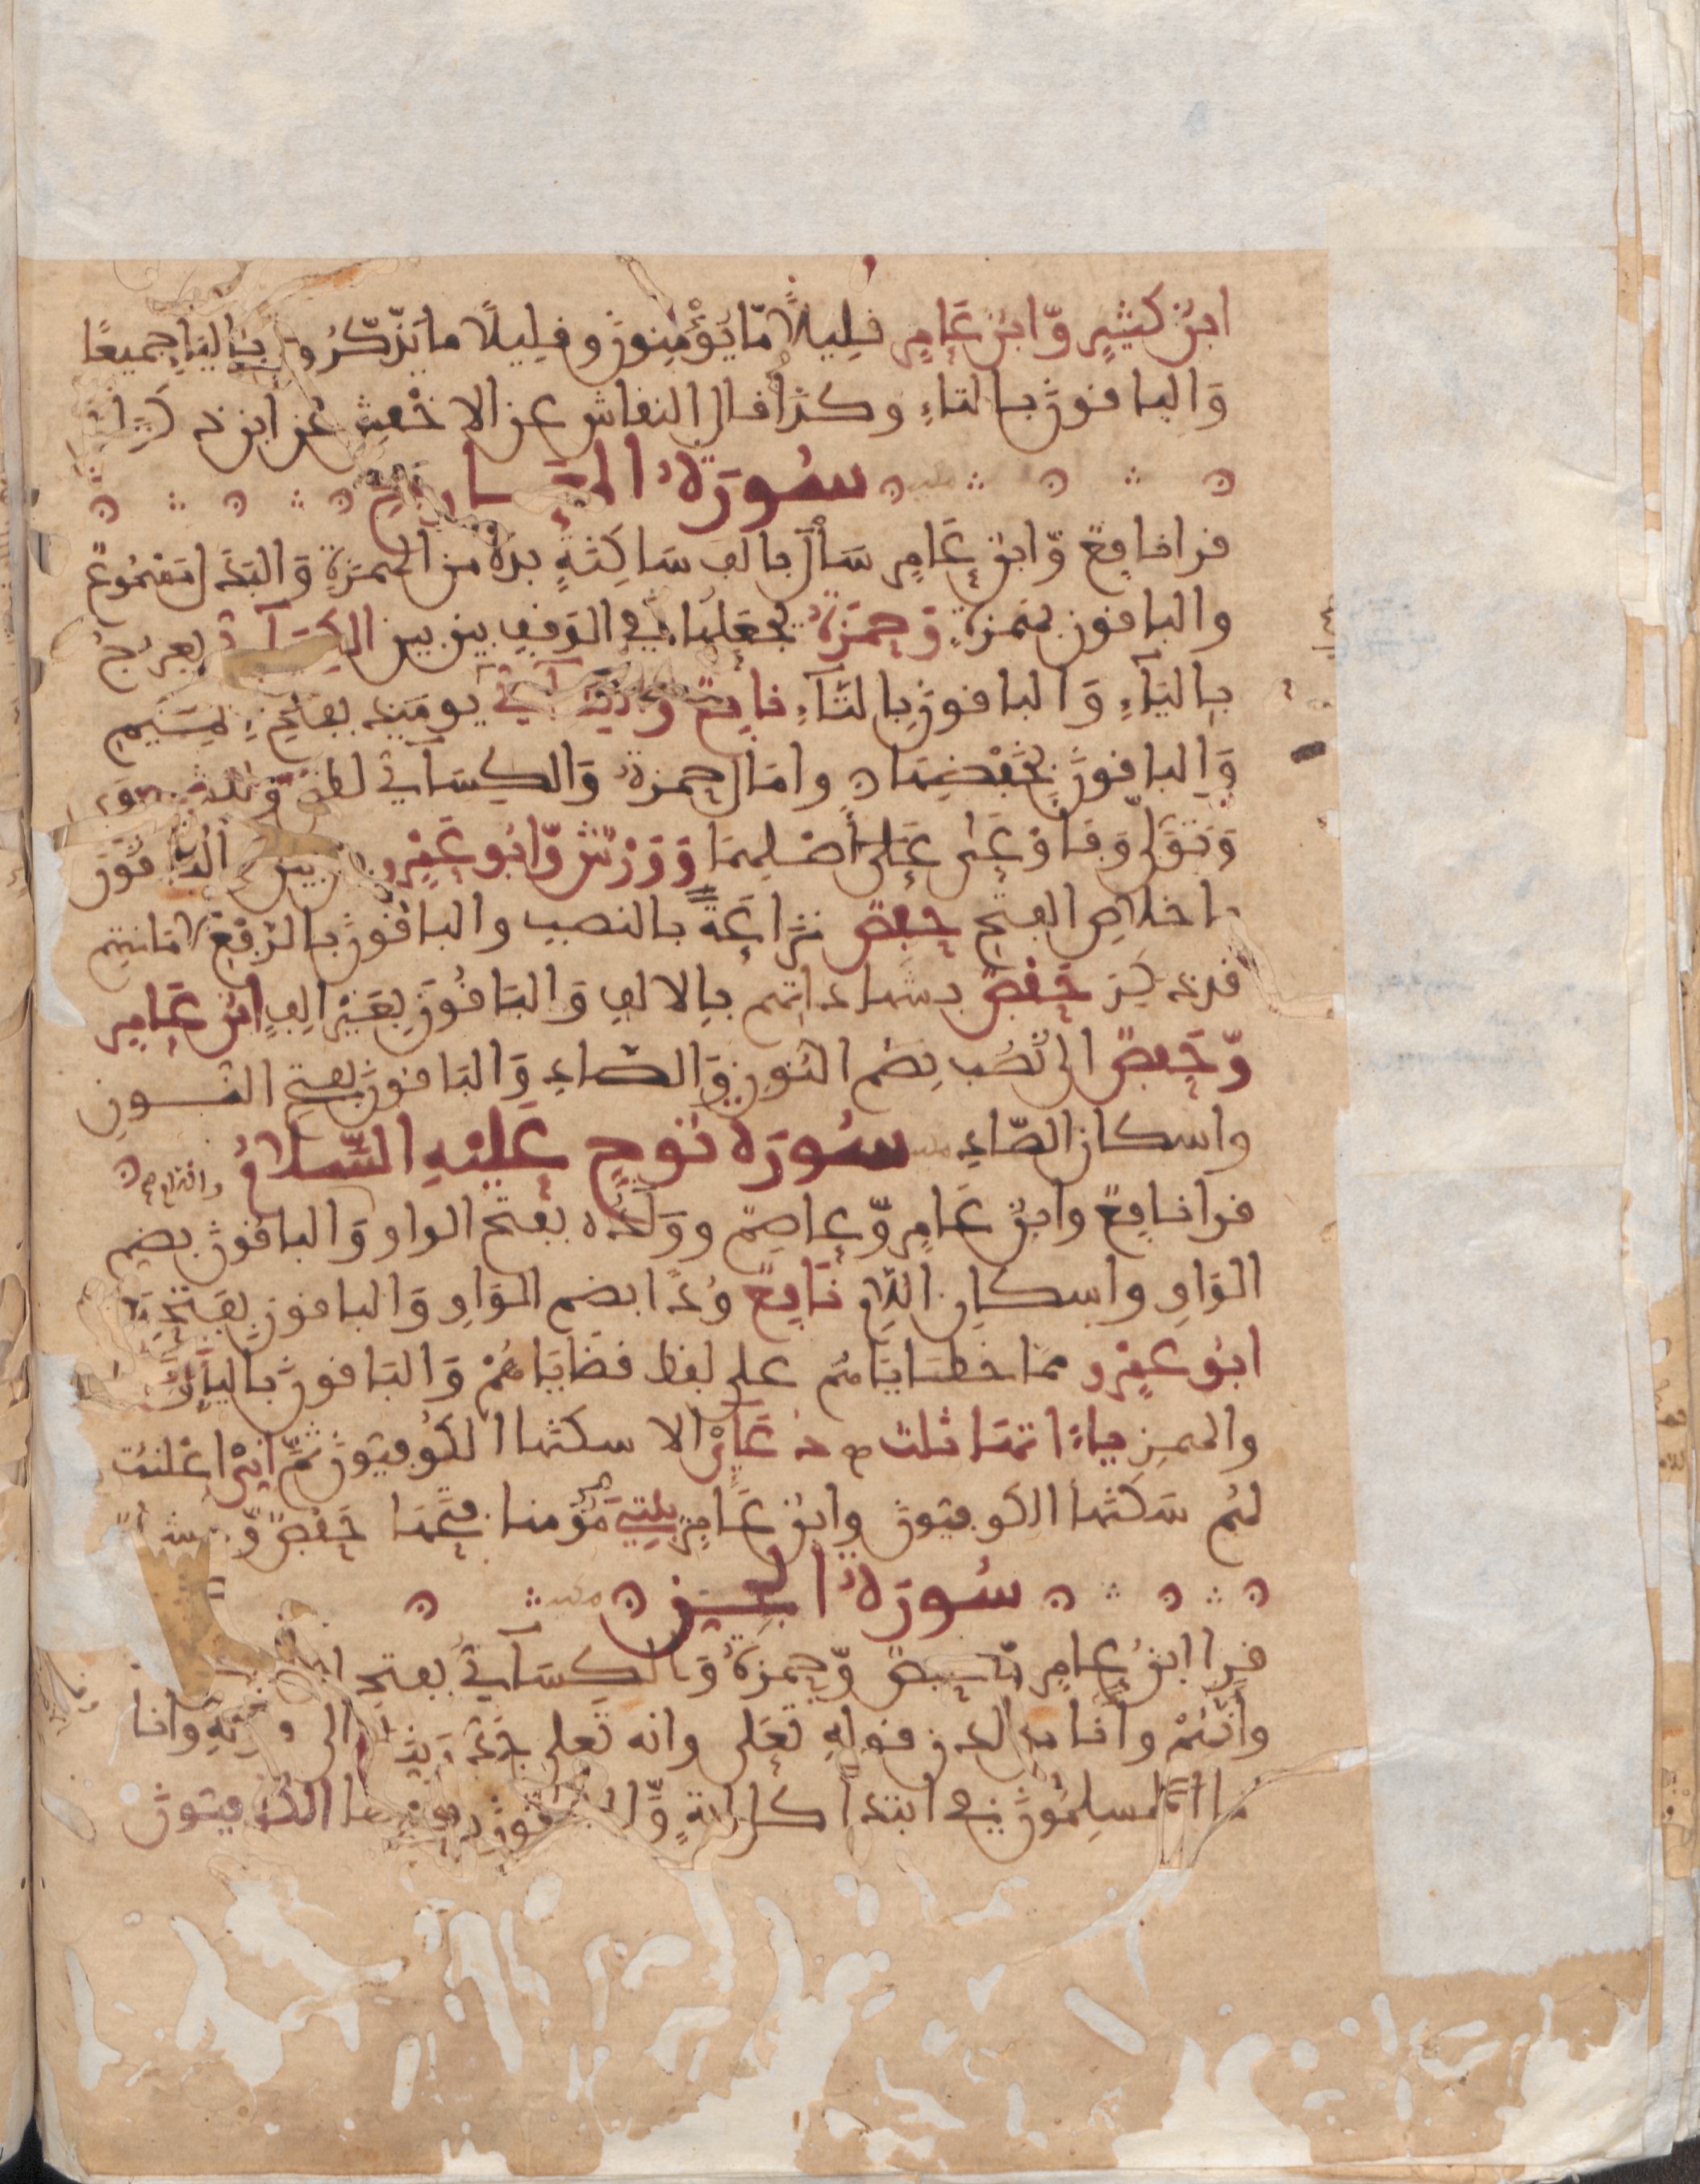 ابن كثير وابن عامر قليلا ما يؤمنون وقليلا ما يذكرون بالياء جميعا
والباقون بالتاء وكذا قال النقاش عن الاخفش عن ابن ذكوان
سورة المعارج
قرا نافع وابن عامر سال بالف ساكنة بدلا من الهمزة والبدل مسموع
والباقون بهمزة وحمزة يجعلها في الوقف بين بين الكسآءي يعرج
بالياء والباقون بالتآء نافع والكسآءي يومئذ بفتح الميم
والباقون بخفضها وامال حمزة والكسآءي لظى وللشوى
وتولى وفاوعى على اصلهما وورش وابو عمرو بين بين والباقون
باخلاص الفتح حفص نزاعة بالنصب والباقون بالرفع لاماناتهم
قد ذكر حفص بشهاداتهم بالالف والباقون بغير الف ابن عامر
وحفص الى نصب بضم النون والصاد والباقون بفتح النون
واسكان الصاد سورة نوح عليه السلام
قرا نافع وابن عامر وعاصم وولده بفتح الواو واللام والباقون بضم
الواو واسكان اللام نافع ودا بضم الواو والباقون بفتحها
ابو عمرو مما خطاياهم على لفظ قضاياهم والباقون بالياء والتاء
والهمز ياءاتها ثلث دعآءي الا سكنها الكوفيون ثم اني اعلنت
لهم سكنها الكوفيون وابن عامر بيتي مومنا فتحها حفص وهشام
سورة الجن
قرا ابن عامر وحفص وحمزة والكسآءي بفتح
وانهم وانا من لدن قوله تعلى وانه تعلى جد ربنا الى قوله وانا
منا المسلمون في ابتدا كل اية والباقون بكسرها الكوفيون